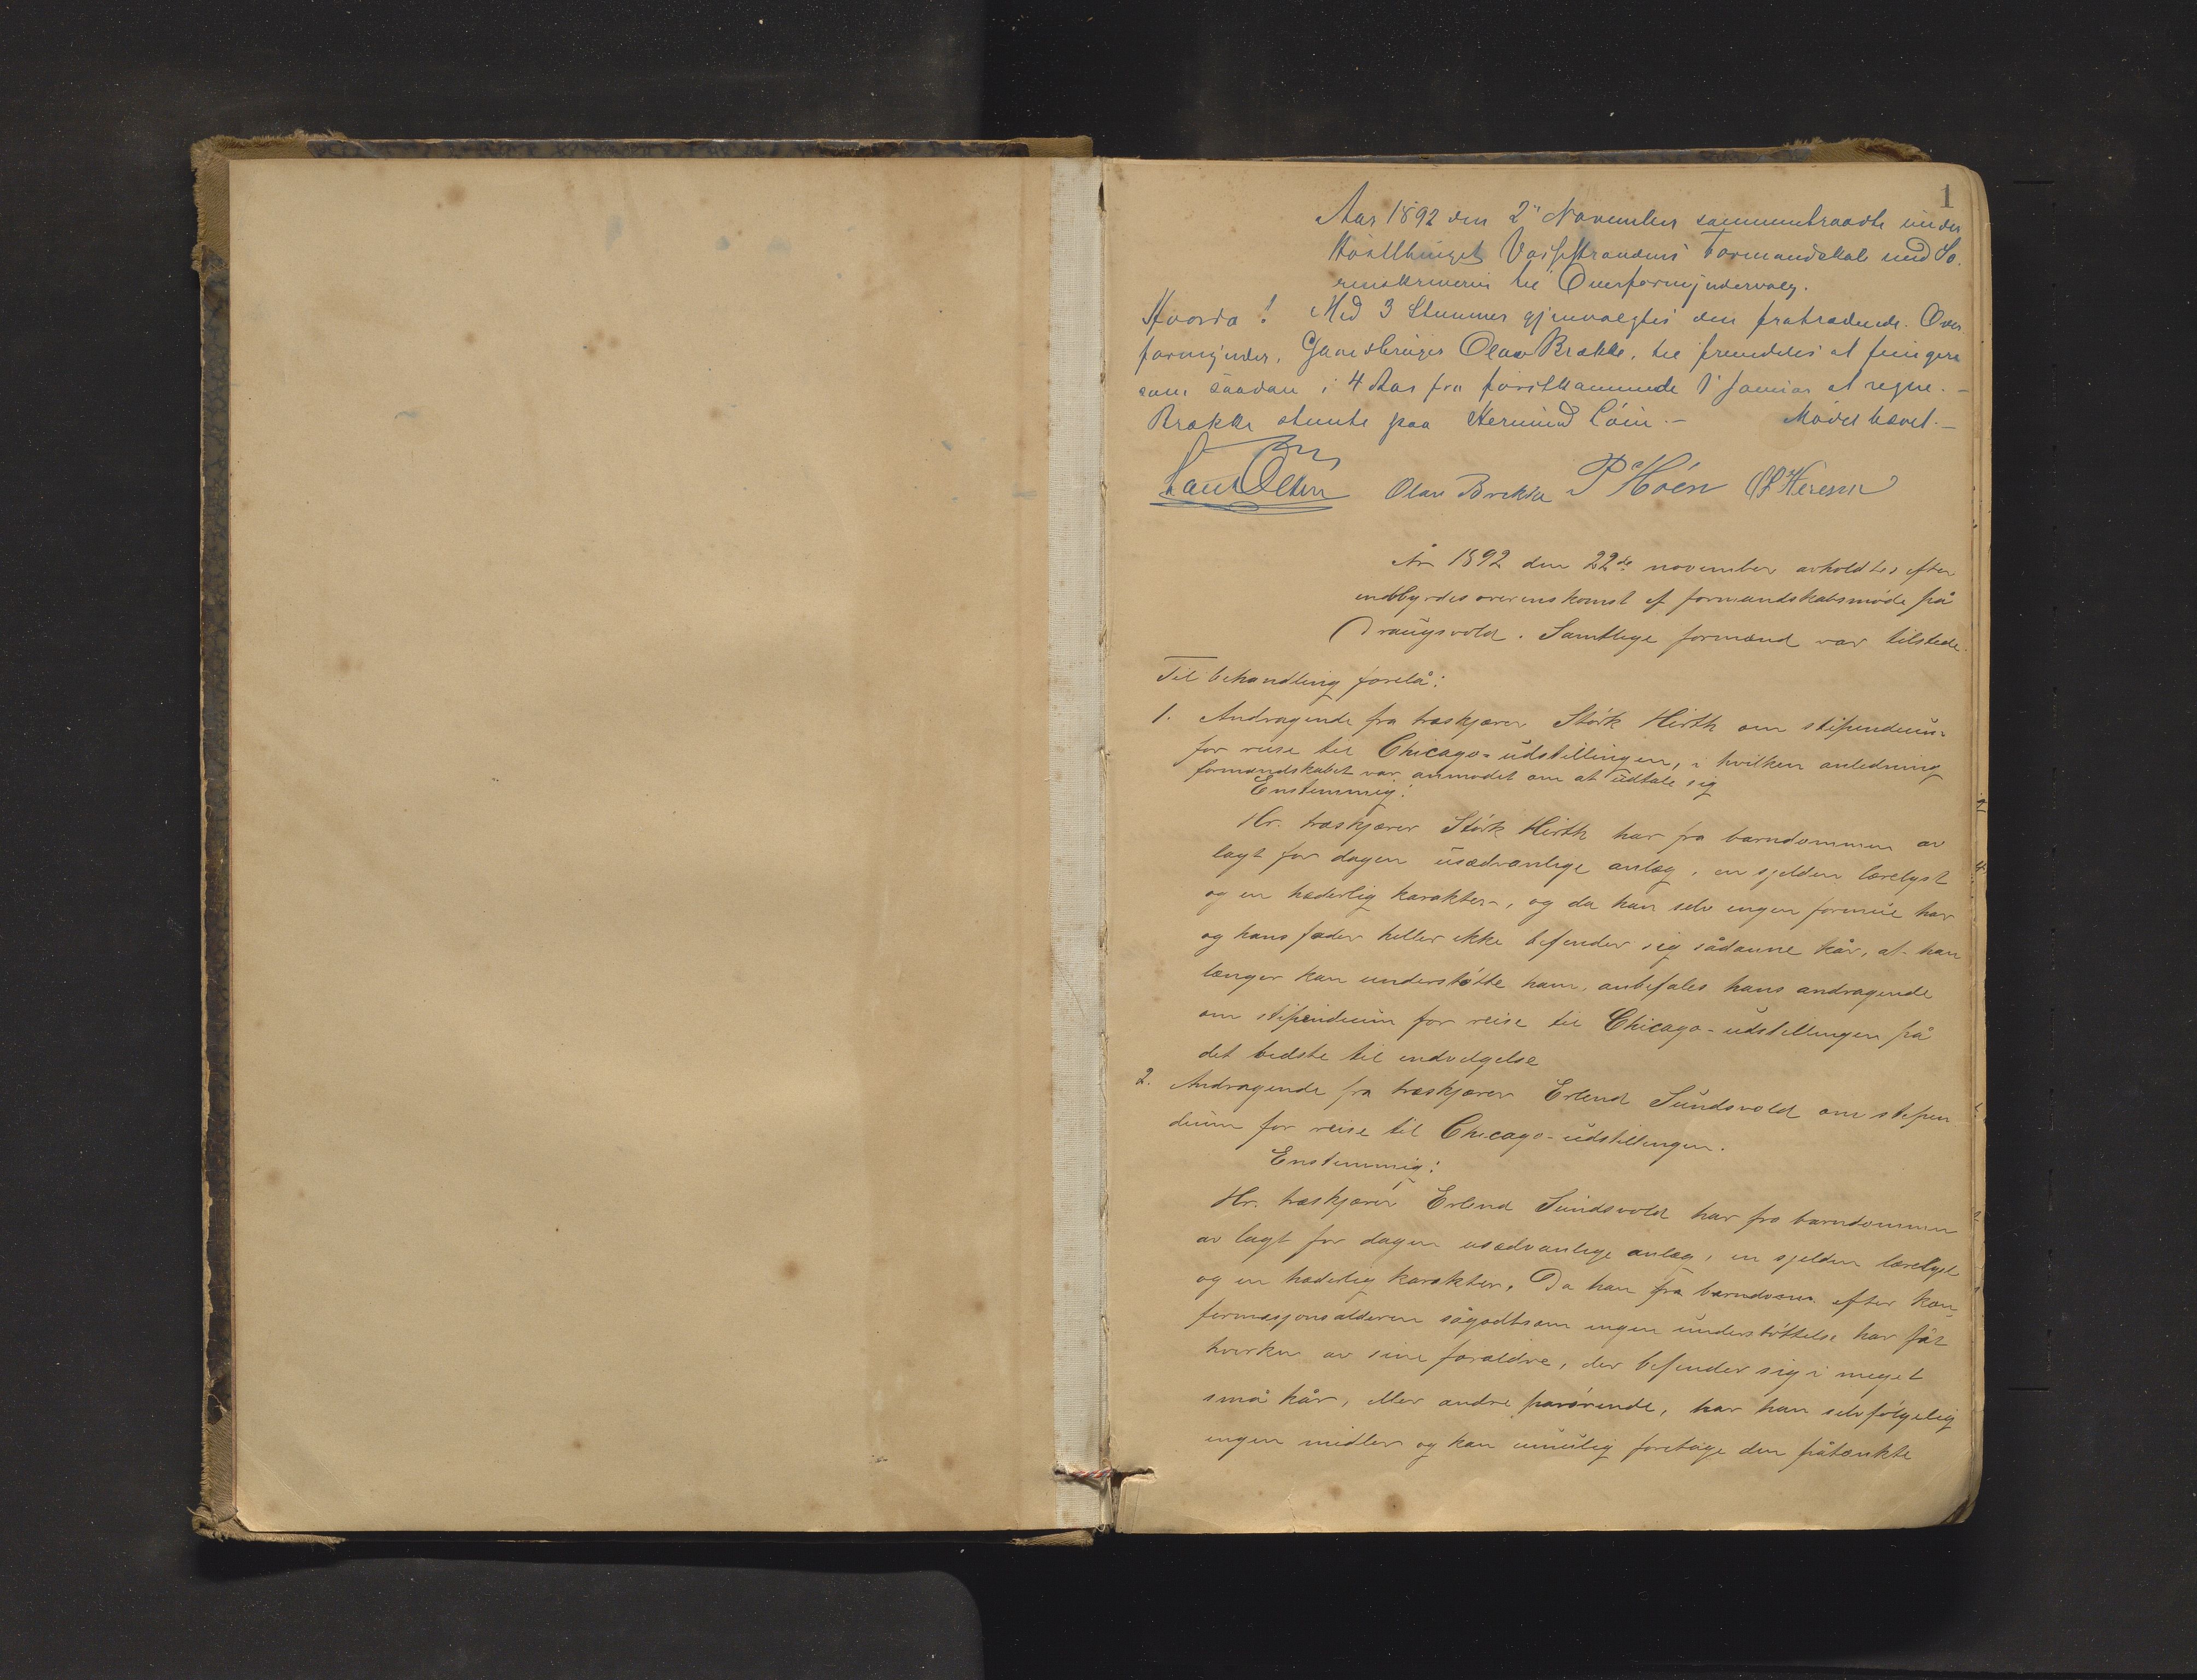 1
Aar 1892 den 2' November sammentraadte under
Høstthinget Vossestrandens Formandskab med So-
renskriveren til Overformyndervalg.
Hvorda: Med 3 Stemmer gjenvalgtes den fratrædende Over
formynder, Gaardbruger Olav Brække, til fremdeles at fungere
som saadan i 4 Aar fra førstkommende 1' Januar at regne. -
Brække stemte paa Hermund Löin. - Mödet hævet. -
Olav Brekke P Höen
År 1892 den 22de november avholdtes efter
indbyrdes overenskomst et formandskabsmöde på
Draugsvold. Samtlige formænd var tilstede.
Til behandling forelå:
1. Andragende fra træskjærer Störk Hirth om stipendium
for reise til Chicago-udstillingen, i hvilken anledning
formandskabet var anmodet om at udtale sig
Enstemmig:
Hr. træskjærer Störk Hirth har fra barndommen av
lagt for dagen usædvanlige anlæg, en sjelden lærelyst
og en hæderlig karakter, og da han selv ingen formue har
og hans fader heller ikke befinder sig sådanne kår, at han
længer kan understötte ham, anbefales hans andragende
om stipendium for reise til Chicago-udstillingen på
det bedste til indvilgelse
2. Andragende fra træskjærer Erlend Sundsvold om stipen
dium for reise til Chicago-udstillingen.
Enstemmig:
Hr. træskjærer Erlend Sundsvold har fra barndommen
av lagt for dagen usædvanlige anlæg, en sjelden lærelyst
og en hæderlig karakter. Da han fra barndomen efter kon
firmasjonsalderen sågodtsom ingen understöttelse har fåt
hverken av sine forældre, der befinder sig i meget
små kår, eller andre pårörende, har han selvfölgelig
ingen midler og kan umulig foretage den påtænkte